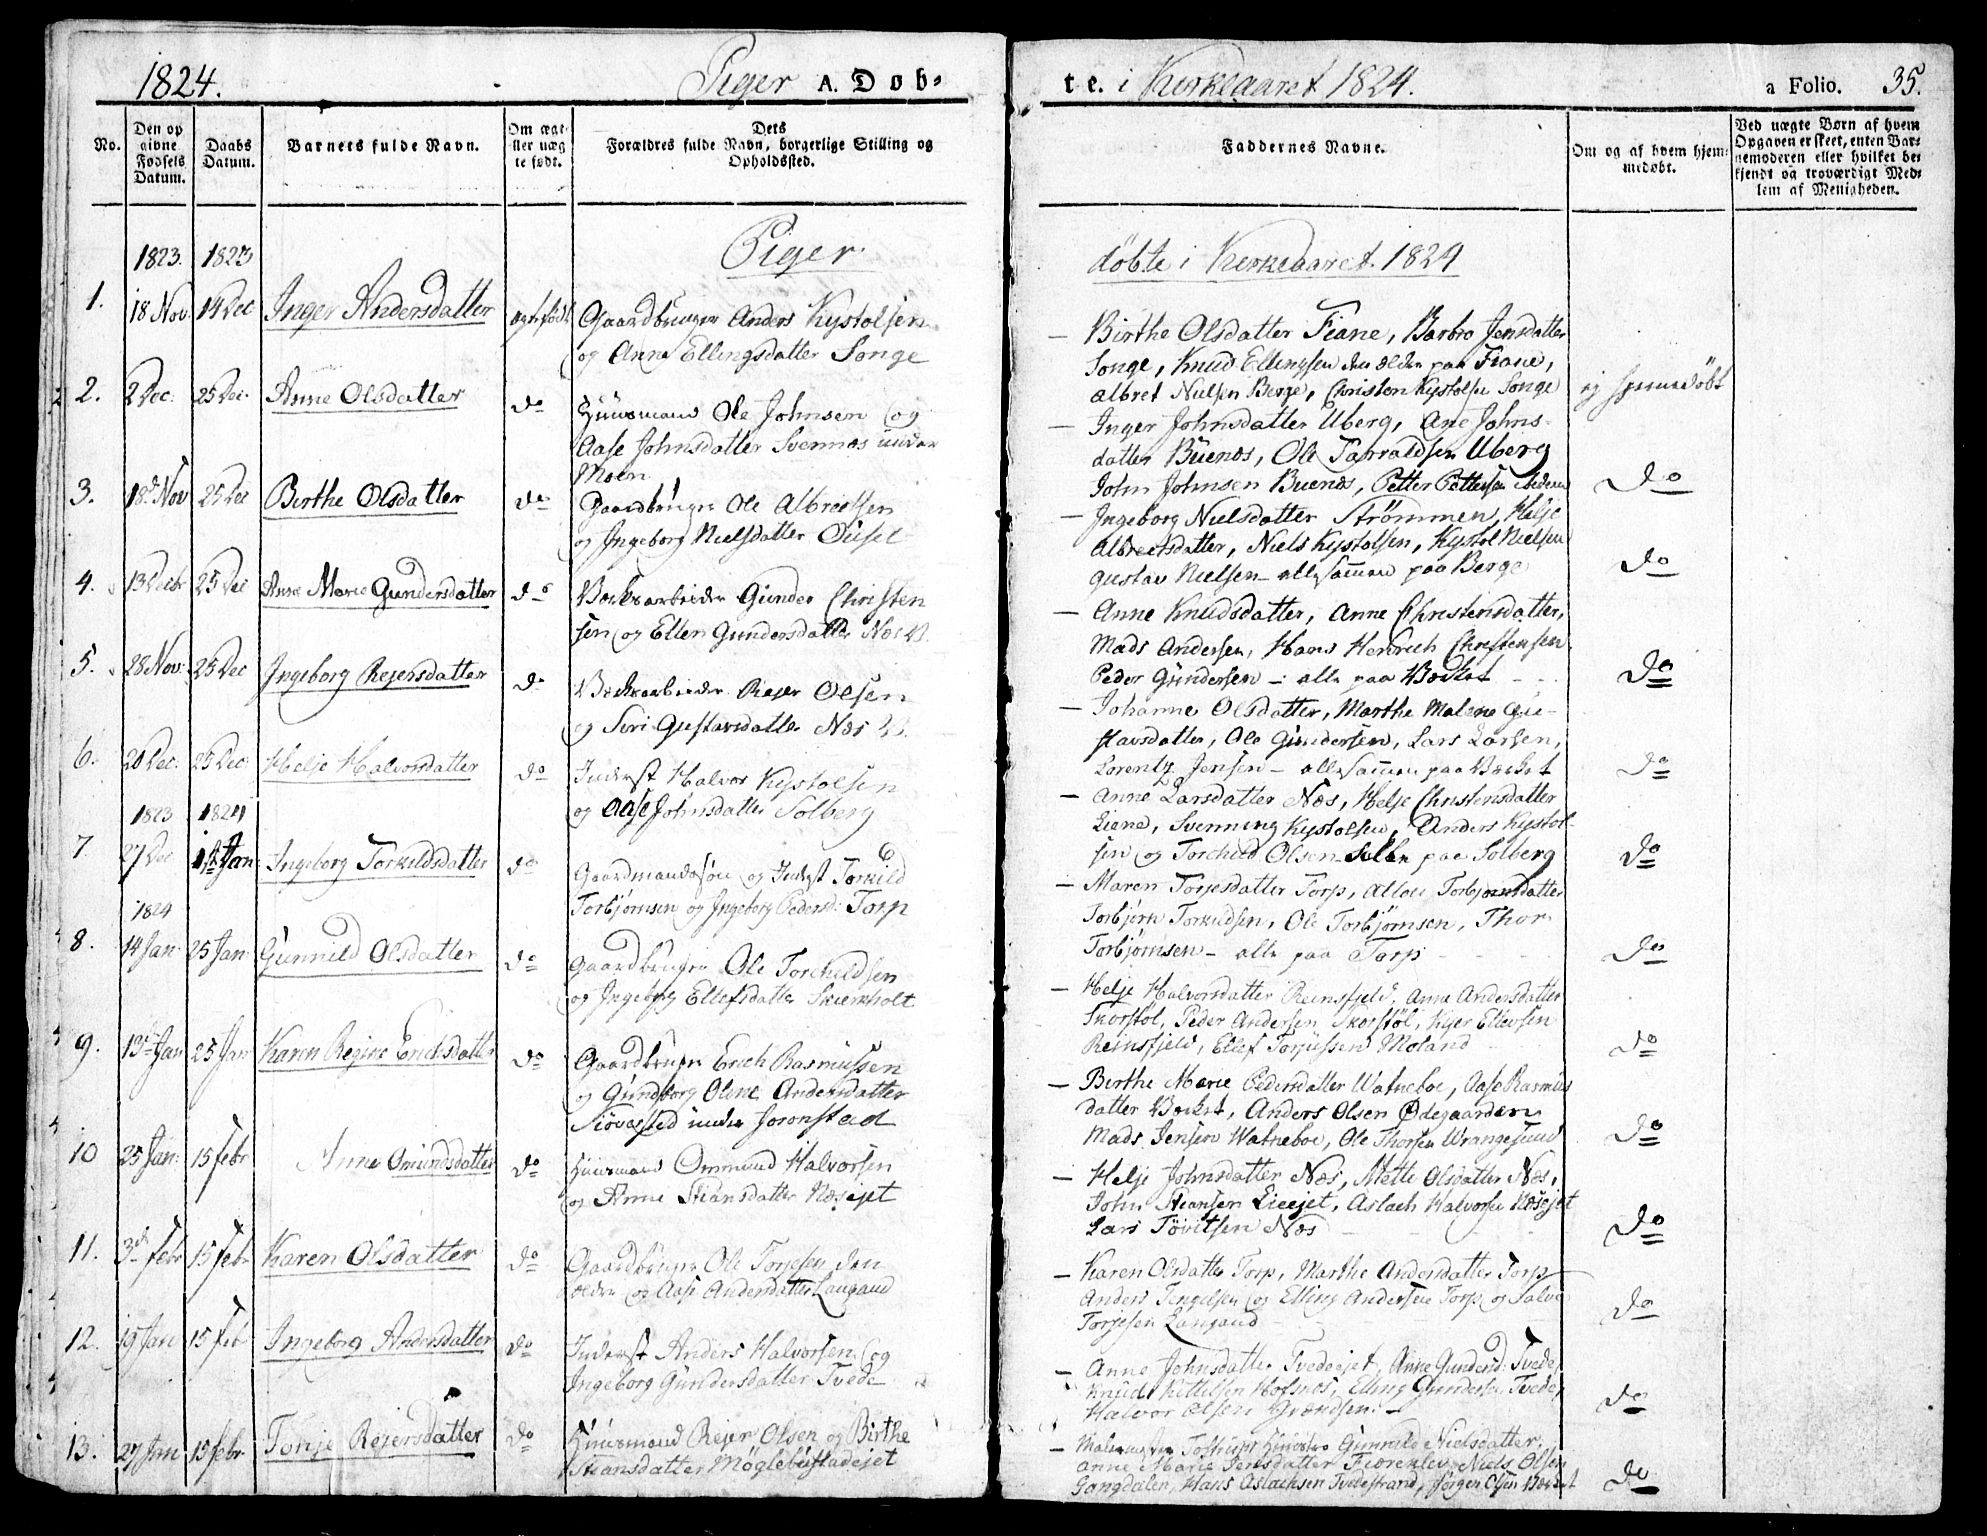 1824.
Piger A. Døb-
No.
Den op
givne
Fødsels
Datum.
Daabs
Datum.
Barnets fulde Navn.
Om ægt
ller uæg
te født.
Dets
Forældres fulde Navn, borgerlige Stilling og
Opholdssted.
Piger
1823. 1823
1. 18 Nov 14 Dec Inger Andersdatter Gaardbruger Anders Kystolsen
og Anne Ellingsdatter Songe
2. 2 Dec. 25 Dec. Anne Olsdatter do Huusmand Ole Johnsen og
Aase Johnsdatter Svennes under
Moen
3. 18de Nov 25 Dec Birthe Olsdatter do Gaardbruger Ole Albretsen
og Ingeborg Nielsdatter
4. 13 Decbr 25 Dec Anne Marie Gundersdatter do Værksarbeider Gunder Christen
sen og Ellen Gundersdatter Næs V.
5. 28 Nov. 25 Dec Ingeborg Rejersdatter do Værksarbeider Rejer Olsen
og Siri Gustavsdatter Næs V.
6. 20 Dec. 25 Dec. Helje Halvorsdatter do Inderst Halvor Kystolsen
og Aase Johnsdatter Solberg
1823 1824
7. 27 Dec 1ste Jan. Ingeborg Torkildsdatter do Gaardmandssøn og Inderst Torkild
Torbjørnsen og Ingeborg Pedersd. Torp
1824
8. 14 Jan. 25 Jan. Gunnild Olsdatter do Gaardbruger Ole Torchildsen
og Ingeborg Ellefsdatter Skiernholt
9. 13de Jan 25 Jan Karen Regine Ericksdatter do Gaardbruger Erich Rasmussen
og Gundborg Oline Andersdatter
under
10 25 Jan. 15 febr Anne Omundsdatter do Huusmand Ommund Halvorsen
og Anne Stiansdatter Næsejet
11. 3de febr 15 febr Karen Olsdatter do Gaardbruger Ole Torjesen den
ældre og Aase Andersdatter Langand
12. 19 Jan 15 feb Ingeborg Andersdatter do Inderst Anders Halvorsen og
Ingeborg Gundersdatter Tvede
13. 27 Jan 15 febr Tonje Rejersdatter do Huusmand Rejer Olsen og Birthe
Stiansdatter Møglebustadejet
te. i Kirkeaaret 1824.
a Folio. 35.
Faddernes Navne.
Om og af hvem hjem-
medøbt.
Ved uægte Børn af hvem
Opgaven er skeet, enten Bar-
nemoderen eller hvilket be-
kjendt og troværdigt Med-
lem af Menigheden.
døbte i Kirkeaaret. 1824
— Birthe Olsdatter Fiane, Barbro Jensdatter
Songe, Knud Ellingsen den ældre paa Fiane,
Albret Nielsen Berge, Christen Kystolsen Songe ej hjemmedøbt
— Inger Johnsdatter Uberg, Ane Johns-
datter Buenes, Ole Tarraldsen Uberg
John Johnsen Buenes, Petter Pettersen do
— Ingeborg Nielsdatter Strømmen, Helje
Albretsdatter, Niels Kystolsen, Kystol Nielsen
Gustav Nielsen - allesammen paa Berge do
— Anne Knudsdatter, Anne Christensdatter,
Mads Andersen, Hans Henrich Christensen
Peder Gundersen - alle paa Værket do
— Johanne Olsdatter, Marthe Malene Gu-
stavsdatter, Ole Gundersen, Lars Larsen,
Lorentz Jensen - allesammen paa Værket do
— Anne Larsdatter Næs, Helje Christensdatter
Liene, Svenning Kystolsen, Anders Kystol-
sen og Torchild Olsen alle paa Solberg do
— Maren Torjesdatter Torp, Torbjørnsdatter
Torbjørn Torkildsen, Ole Torbjørnsen, Thor
Torbjørnsen - alle paa Torp do
— Helje Halvorsdatter Reinsfjeld, Anne Andersdatter
Skorstøl, Peder Andersen Skorstøl, Ellevsen
Reinsfjeld, Ellef Torjussen Moland do
— Birthe Marie Pedersdatter Watneboe, Aase Rasmus
datter Værket, Anders Olsen Ødegaarden
Mads Jensen Watneboe, Ole Thorsen Wrangesund do
— Helje Johnsdatter Næs, Mette Olsdatter Næs,
John Stiansen Lieejet, Aslach Halvorsen Næsejet
Lars Tovitsen Næs do
— Karen Olsdatter Torp, Marthe Andersdatter Torp
Anders Tengelsen og Elling Andersen Torp og Salve
Torjesen Langand do
— Anne Johnsdatter Tvedeejet, Anne Gundersd. Tvede,
Knud Kittelsen Hofsnes, Elling Gundersen Tvede,
Halvor Olsen Grændsen. - do
— Gunnild Nielsdatter,
Anne Marie Jensdatter Niels Olsen
Gangdalen, Hans Aslachsen Tvedestrand, Jørgen Olsen Værket do